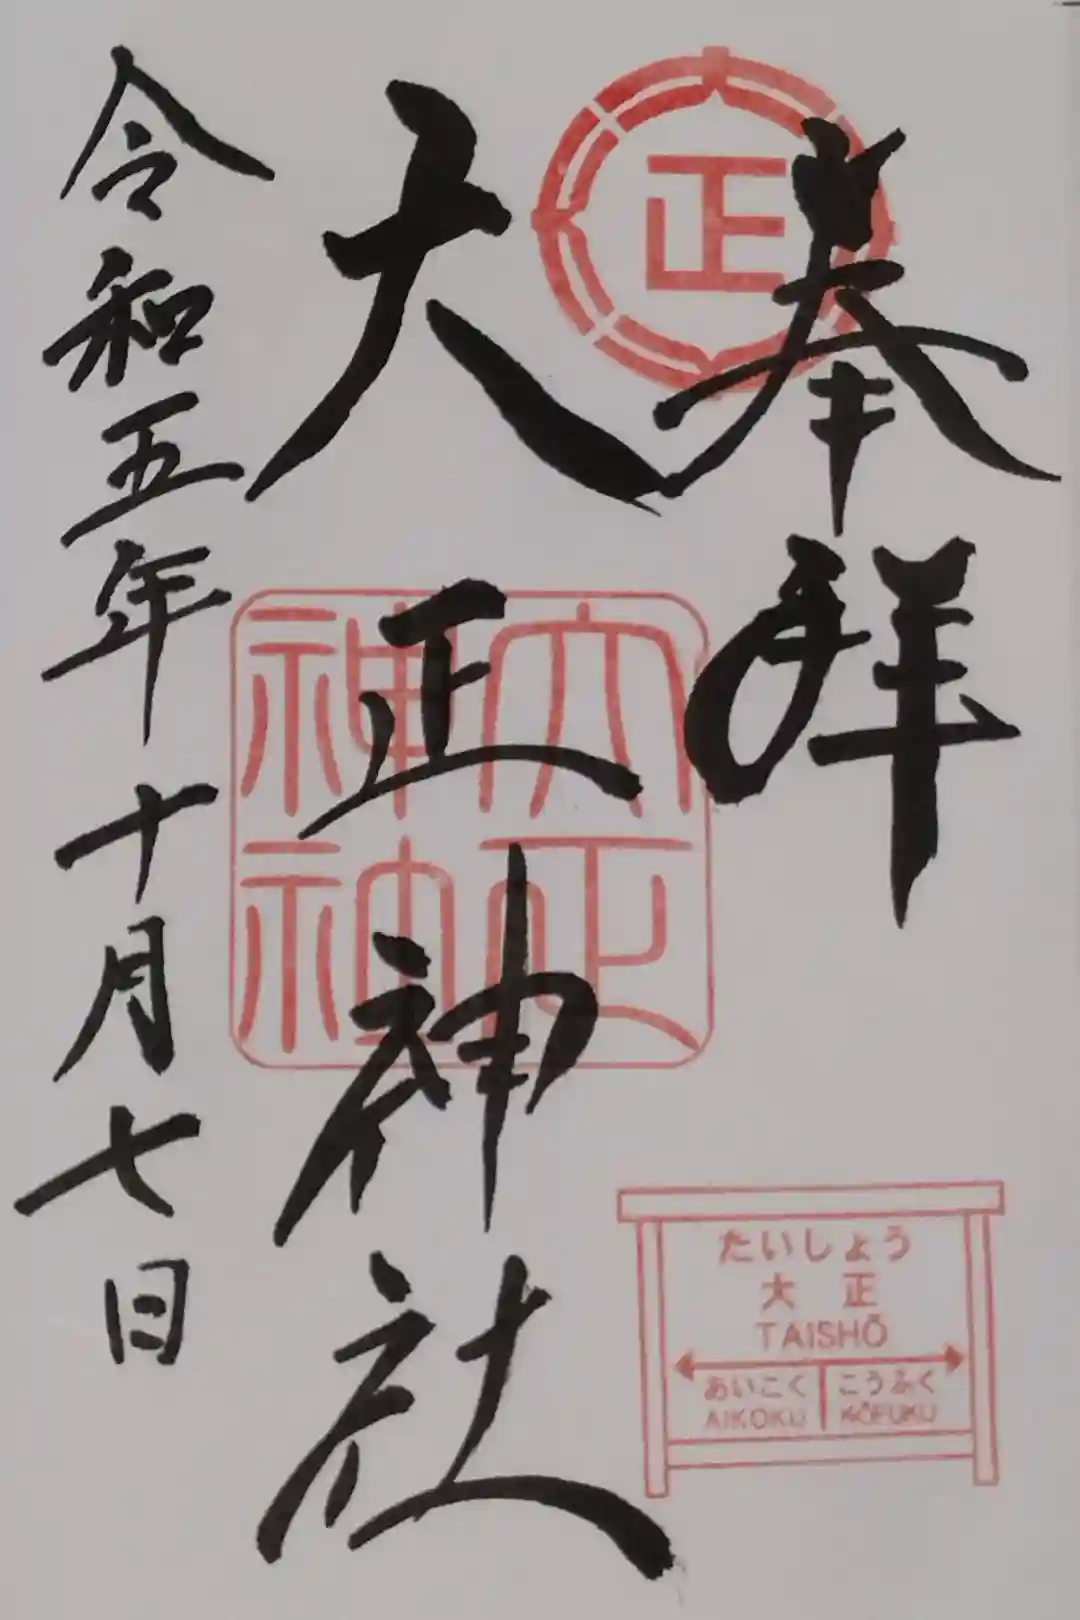 奉拝
正
大正神社
大正
神社
令和五年十月七日
たいしょう
大正
TAISHŌ
あいこく こうふく
AIKOKU KŌFUKU